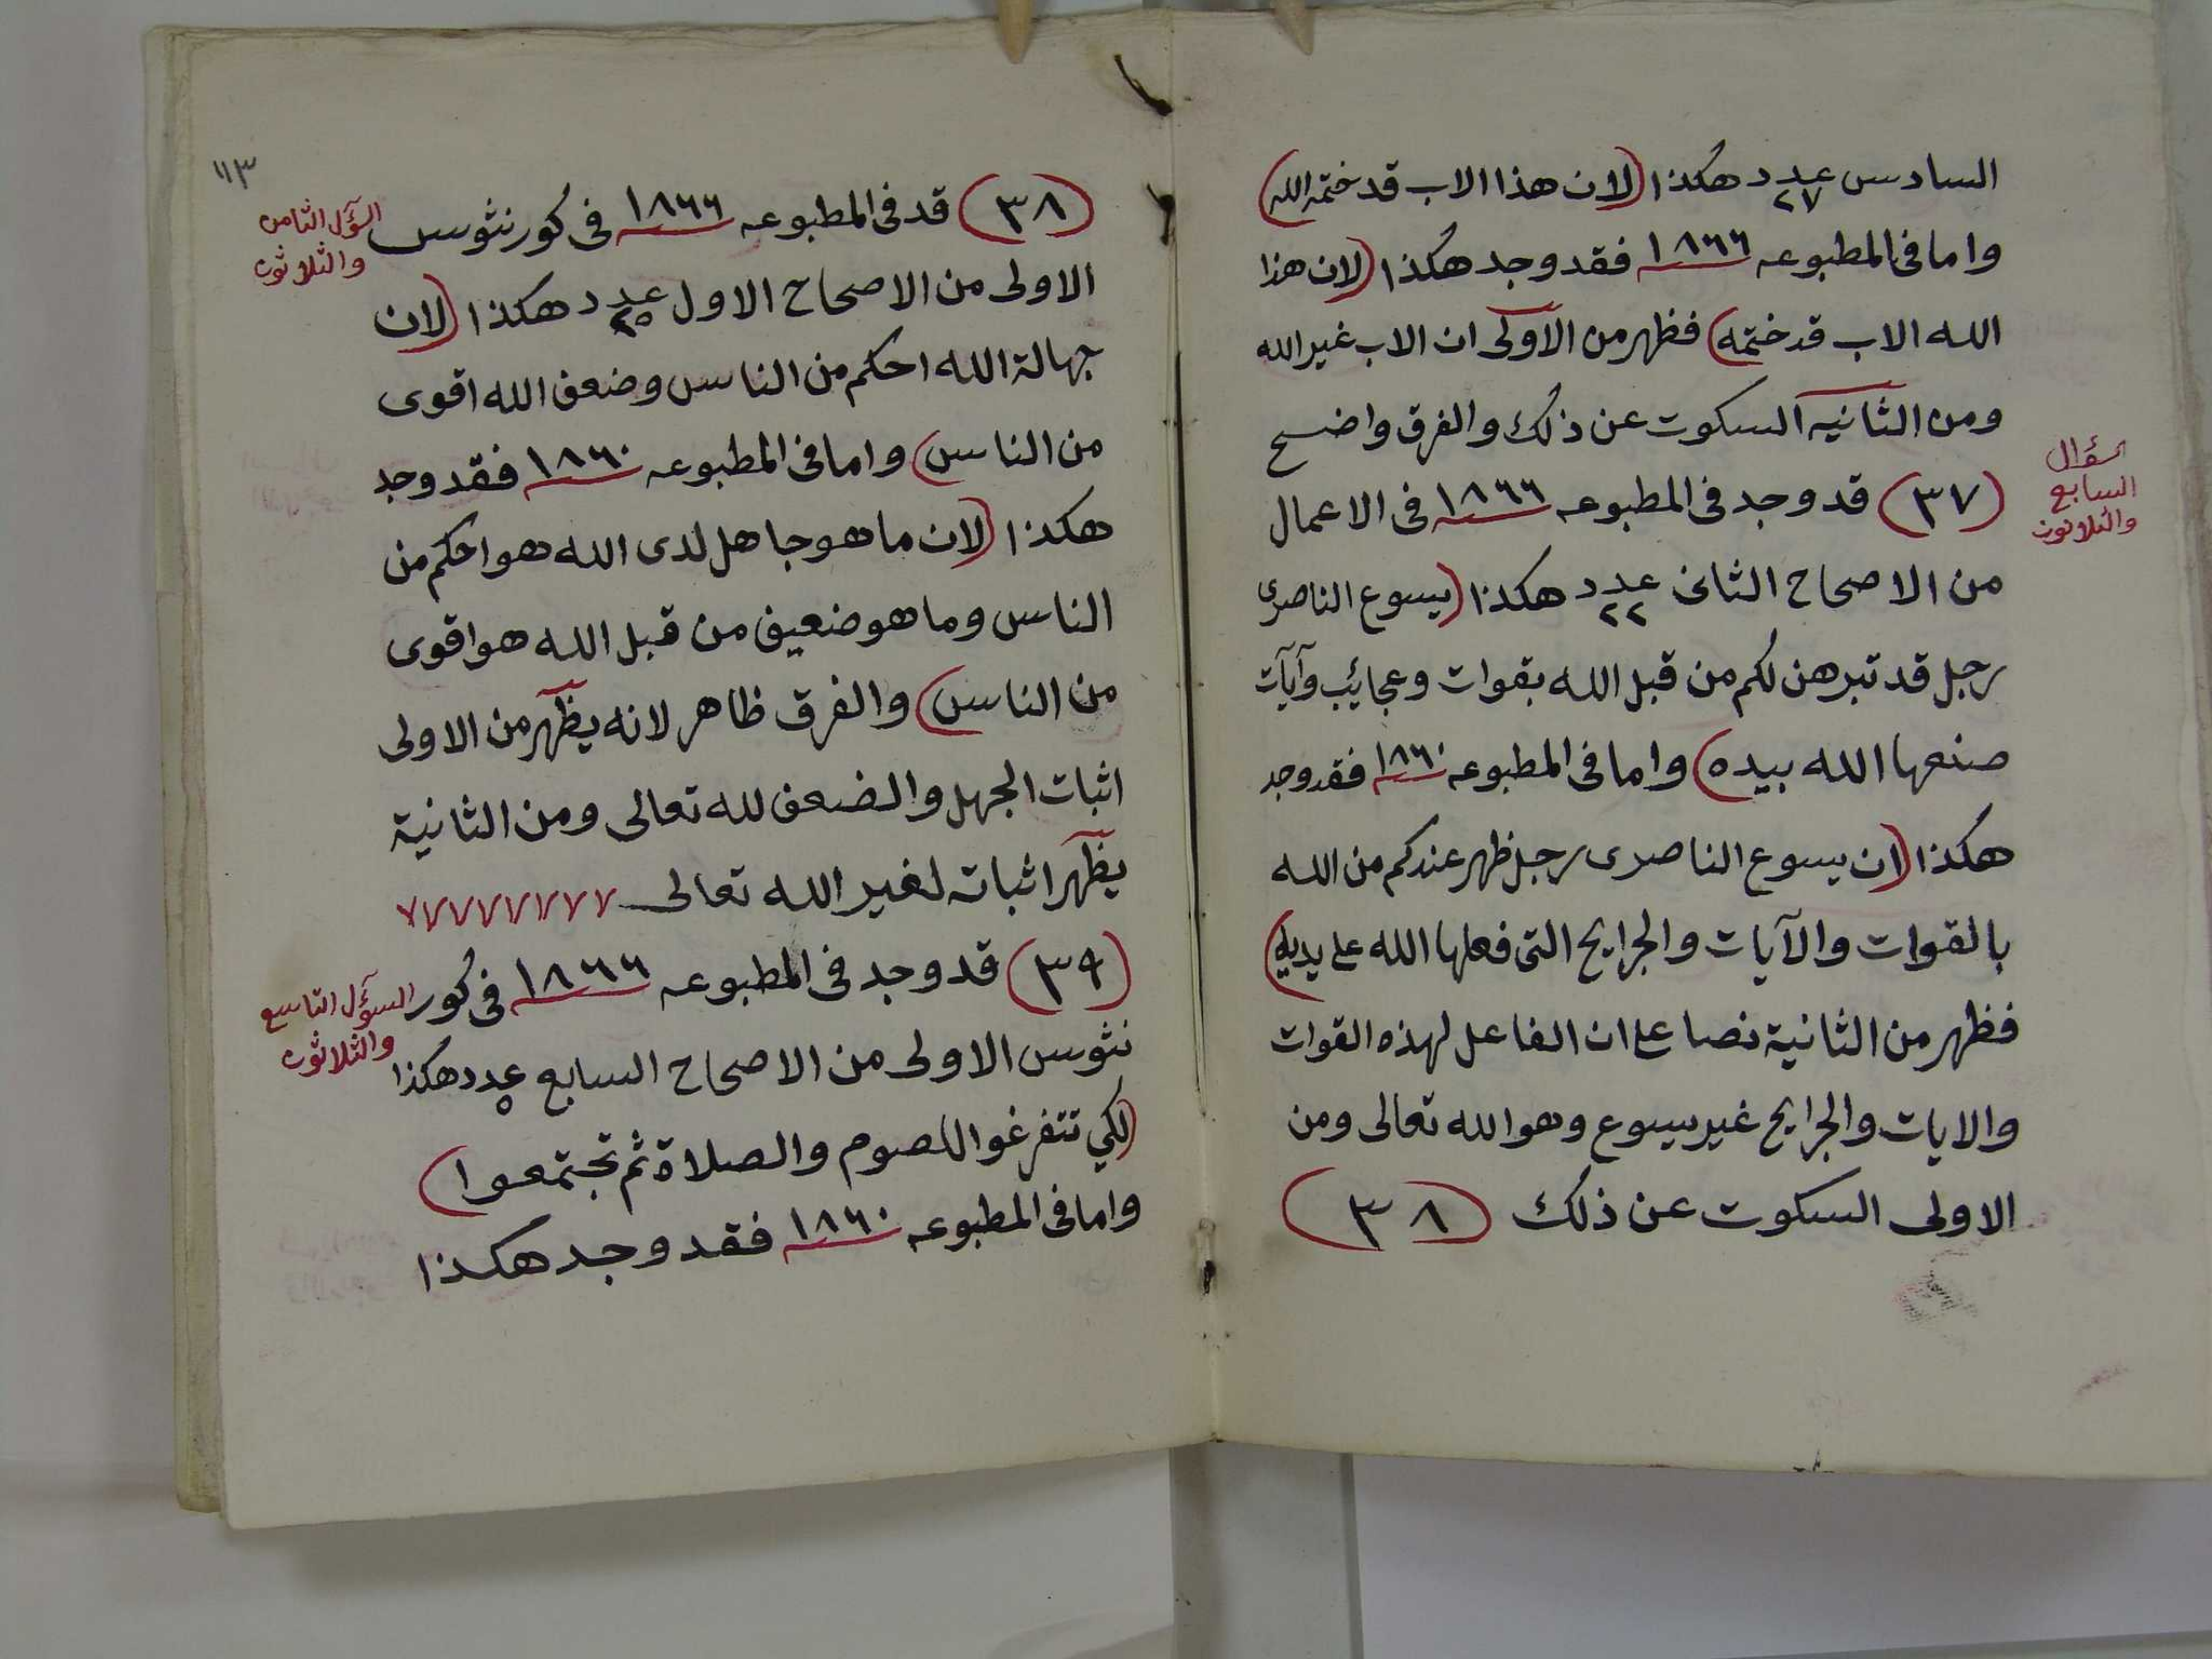 السادس عدد ٢٧ هكذا (لان هذا الاب قد ختمه الله)
واما فى المطبوعه ١٨٦٦ فقد وجد هكذا (لان هذا
الله الاب قد ختمه) فظهر من الاولى ان الاب غير الله
ومن الثانيه السكوت عن ذلك والفرق واضح
السؤال
السابع
والثلاثون
(٣٧) قد وجد فى المطبوعه ١٨٦٦ فى الاعمال
من الاصحاح الثانى عدد ٢٢ هكذا (يسوع الناصرى
رجل قد تبرهن لكم من قبل الله بقوات وعجائب وآيآت
صنعها الله بيده) واما فى المطبوعه ١٨٦٠ فقد وجد
هكذا (ان يسوع الناصرى رجل ظهر عندكم من الله
بالقوات والآيات والجرايح التى فعلها الله على يديه)
فظهر من الثانية نصا على ان الفاعل لهذه القوات
والايات والجرايح غير يسوع وهو الله تعالى ومن
الاولى السكوت عن ذلك (٣٨)
١١٣
السؤآل الثامن
والثلاثون
(٣٨) قد فى المطبوعه ١٨٦٦ فى كورنثوس
الاولى من الاصحاح الاول عدد ٢٥ هكذا (لان
جهالة الله احكم من الناس وضعف الله اقوى
من الناس) واما فى المطبوعه ١٨٦٠ فقد وجد
هكذا (لان ما هو جاهل لدى الله هو احكم من
الناس وما هو ضعيف من قبل الله هو اقوى
من الناس) والفرق ظاهر لانه يظهر من الاولى
اثبات الجهل والضعف لله تعالى ومن الثانية
يظهر اثباته لغير الله تعالى
السوآل التاسع
والثلاثون
(٣٩) قد وجد فى المطبوعه ١٨٦٦ فى كور
نثوس الاولى من الاصحاح السابع عدد ٥ هكذا
(لكي تتفرغوا للصوم والصلاة ثم تجتمعوا)
واما فى المطبوعه ١٨٦٠ فقد وجد هكذا